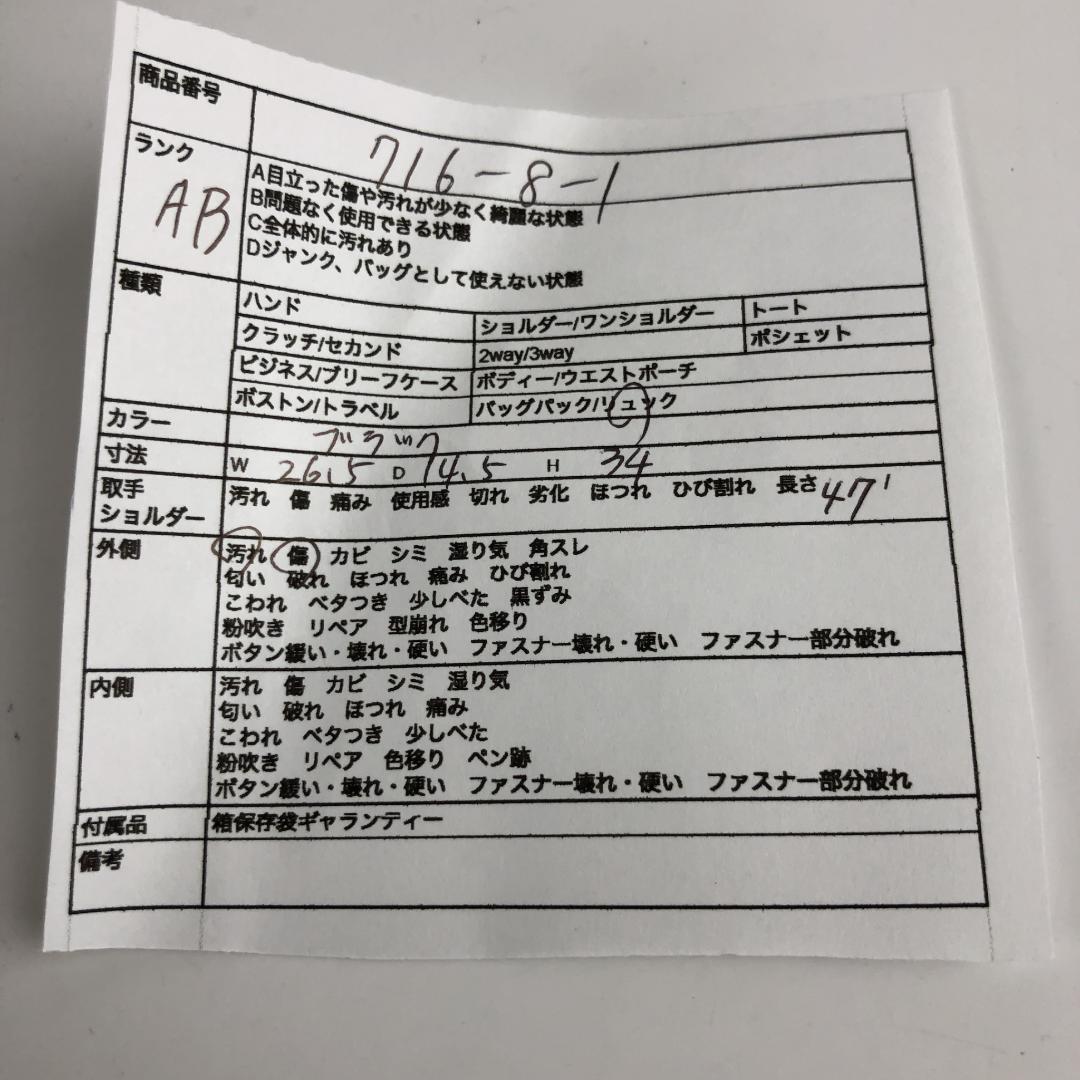 商品番号
716-8-1
ランク
AB
A目立った傷や汚れが少なく綺麗な状態
B問題なく使用できる状態
C全体的に汚れあり
Dジャンク、バッグとして使えない状態
種類
ハンド ショルダー/ワンショルダー トート
クラッチ/セカンド 2way/3way ポシェット
ビジネス/ブリーフケース ボディー/ウエストポーチ
ボストン/トラベル バッグパック/リュック
カラー ブラック
寸法 W 26.5 D 14.5 H 34
取手
ショルダー
汚れ 傷 痛み 使用感 切れ 劣化 ほつれ ひび割れ 長さ 47
外側
汚れ 傷 カビ シミ 湿り気 角スレ
匂い 破れ ほつれ 痛み ひび割れ
こわれ ベタつき 少しべた 黒ずみ
粉吹き リペア 型崩れ 色移り
ボタン緩い・壊れ・硬い ファスナー壊れ・硬い ファスナー部分破れ
内側
汚れ 傷 カビ シミ 湿り気
匂い 破れ ほつれ 痛み
こわれ ベタつき 少しべた
粉吹き リペア 色移り ペン跡
ボタン緩い・壊れ・硬い ファスナー壊れ・硬い ファスナー部分破れ
付属品 箱保存袋ギャランティー
備考